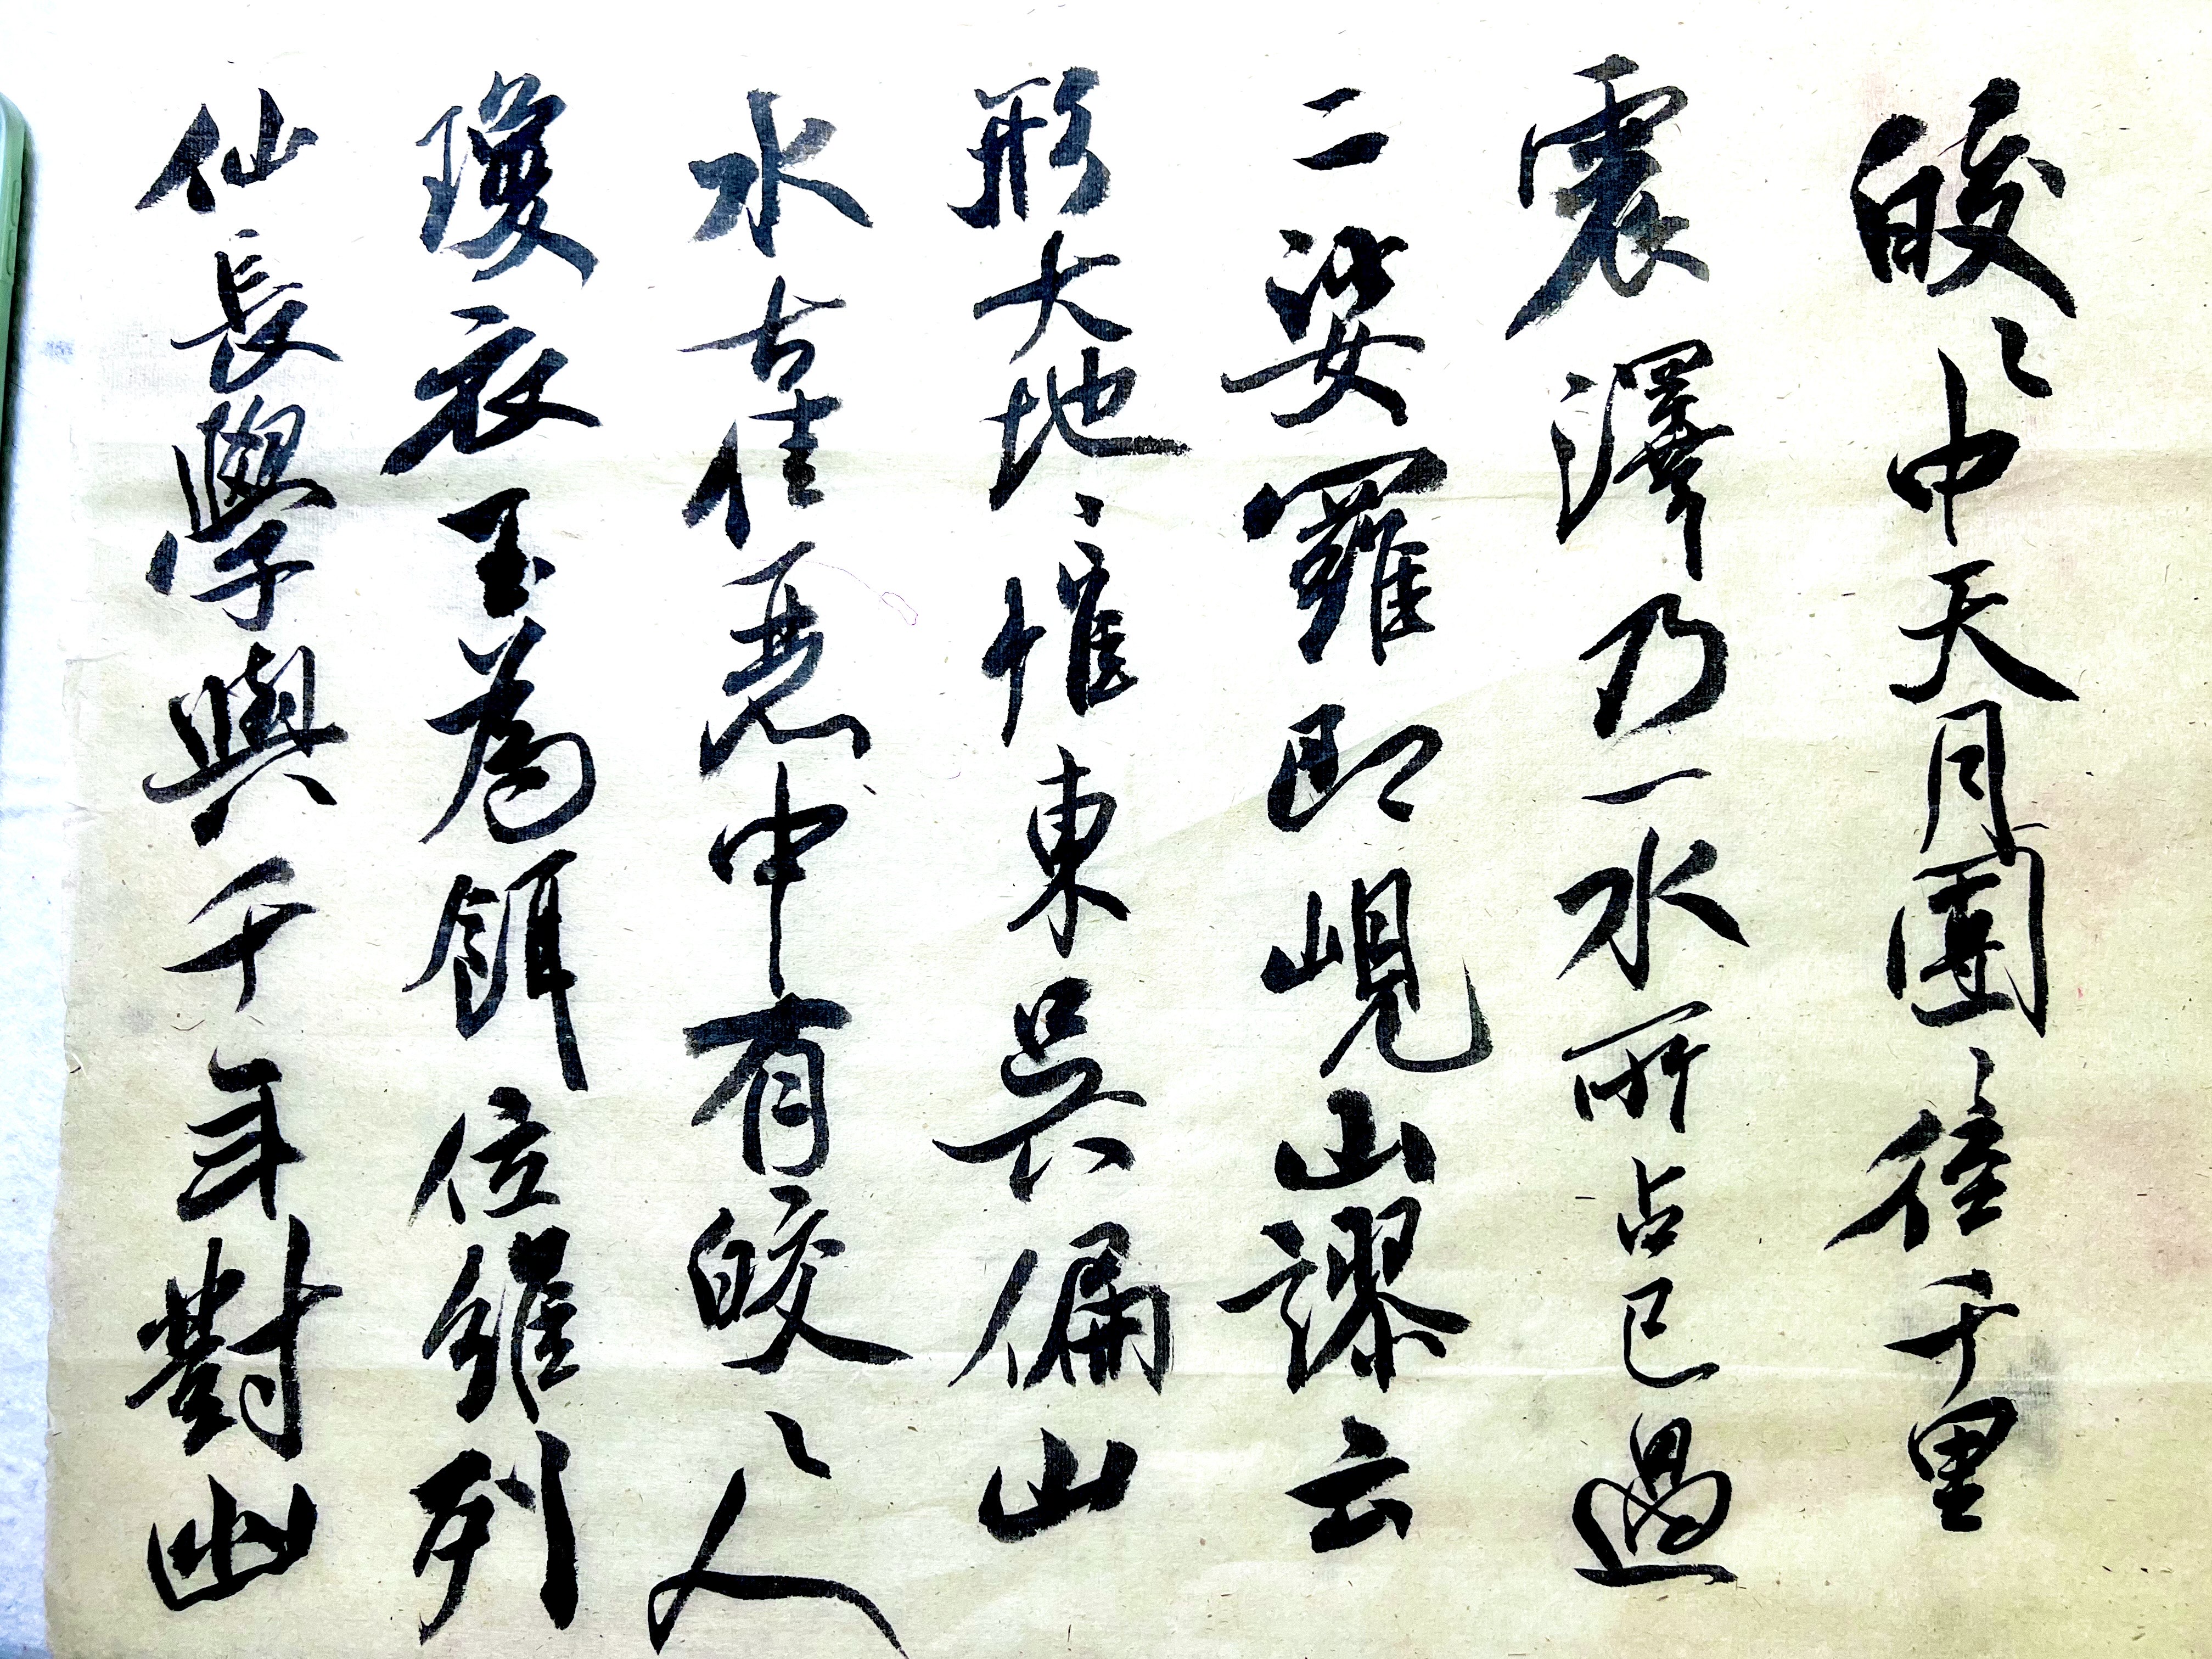 皎〻中天月團〻徑千里
震澤乃一水所占已過
二娑羅即峴山謬云
形大地〻惟東吳偏山
水古佳麗中有皎〻人
瓊衣玉為餌位維列
仙長學與千年對幽